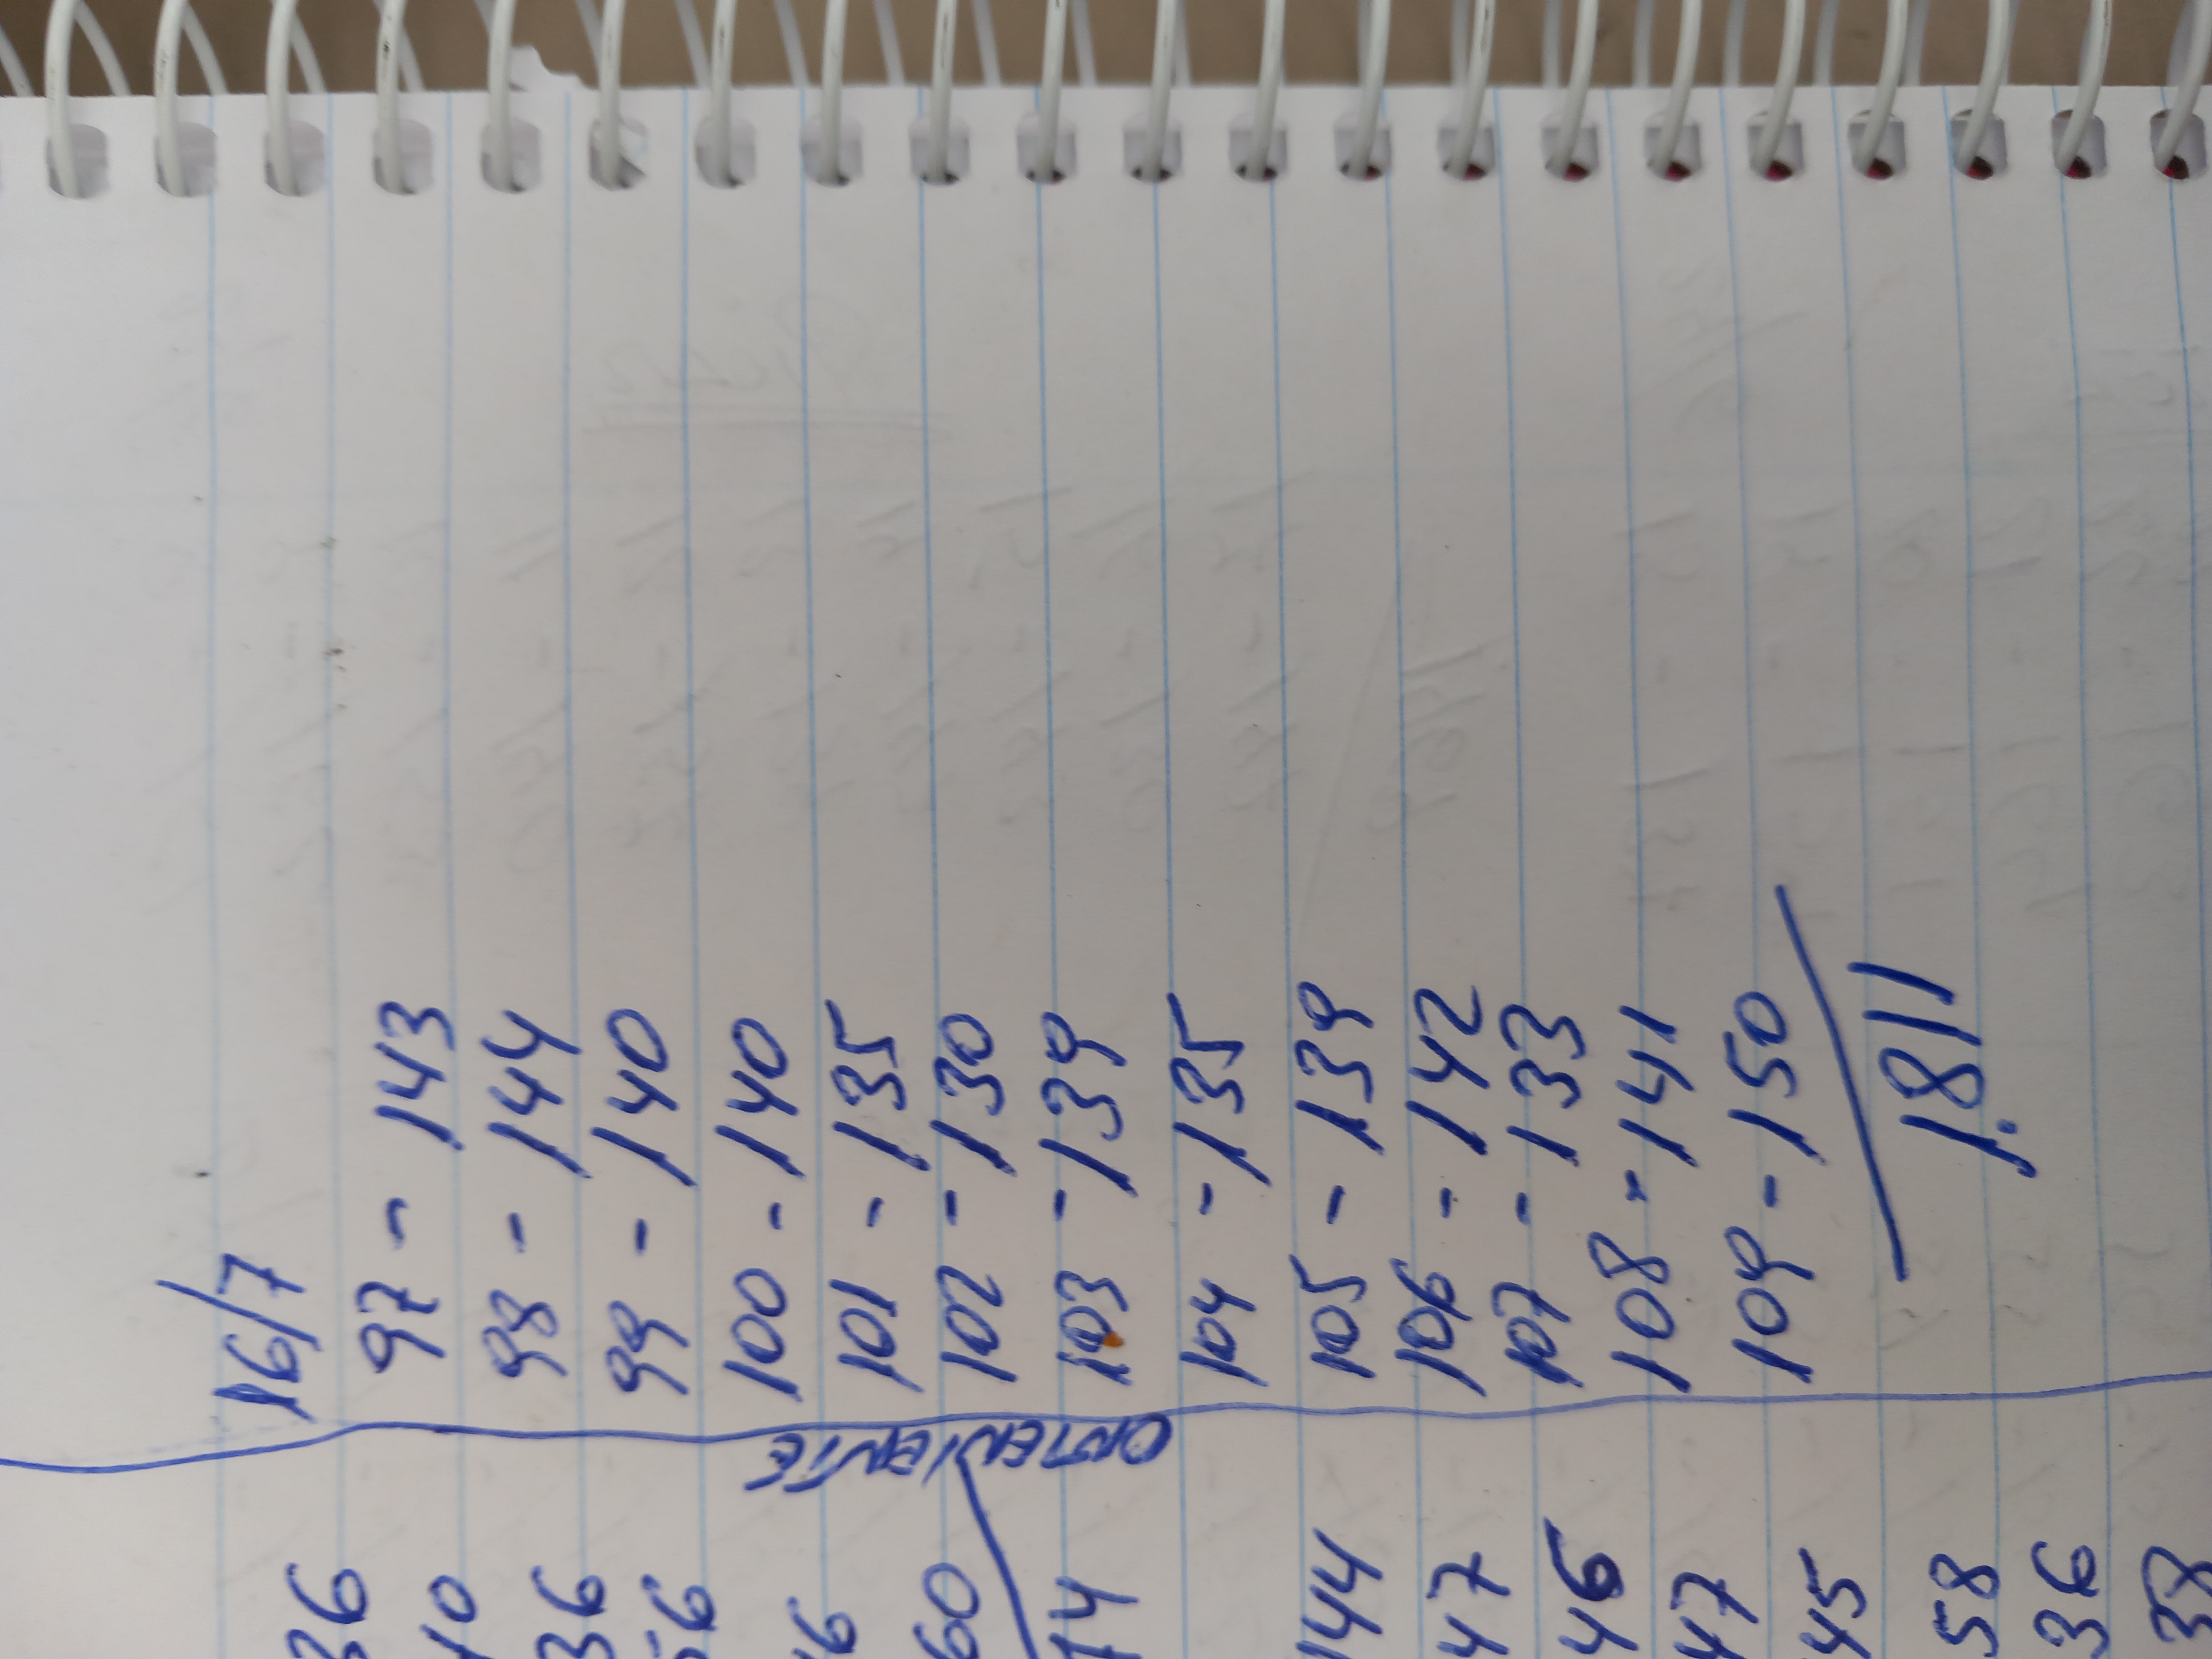 36
40
36
56
46
60
14
144
47
46
47
45
58
36
38
ONTENIENTE
16/7
97 - 143
98 - 144
99 - 140
100 - 140
101 - 135
102 - 130
103 - 139
104 - 135
105 - 139
106 - 142
107 - 133
108 - 141
109 - 150
1.811